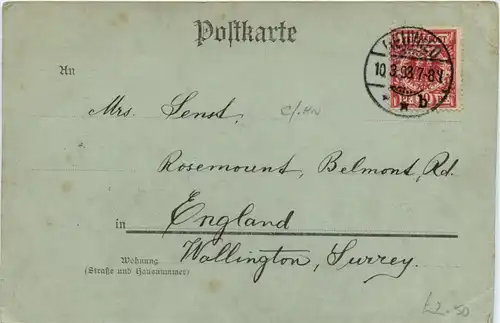 Postkarte
An
10.3.98.7-8N.
b
Mrs. Senst,
Rosemount, Belmont, Rd.
in England
Wohnung
(Straße und Hausnummer)
Wallington, Surrey.
£2-50